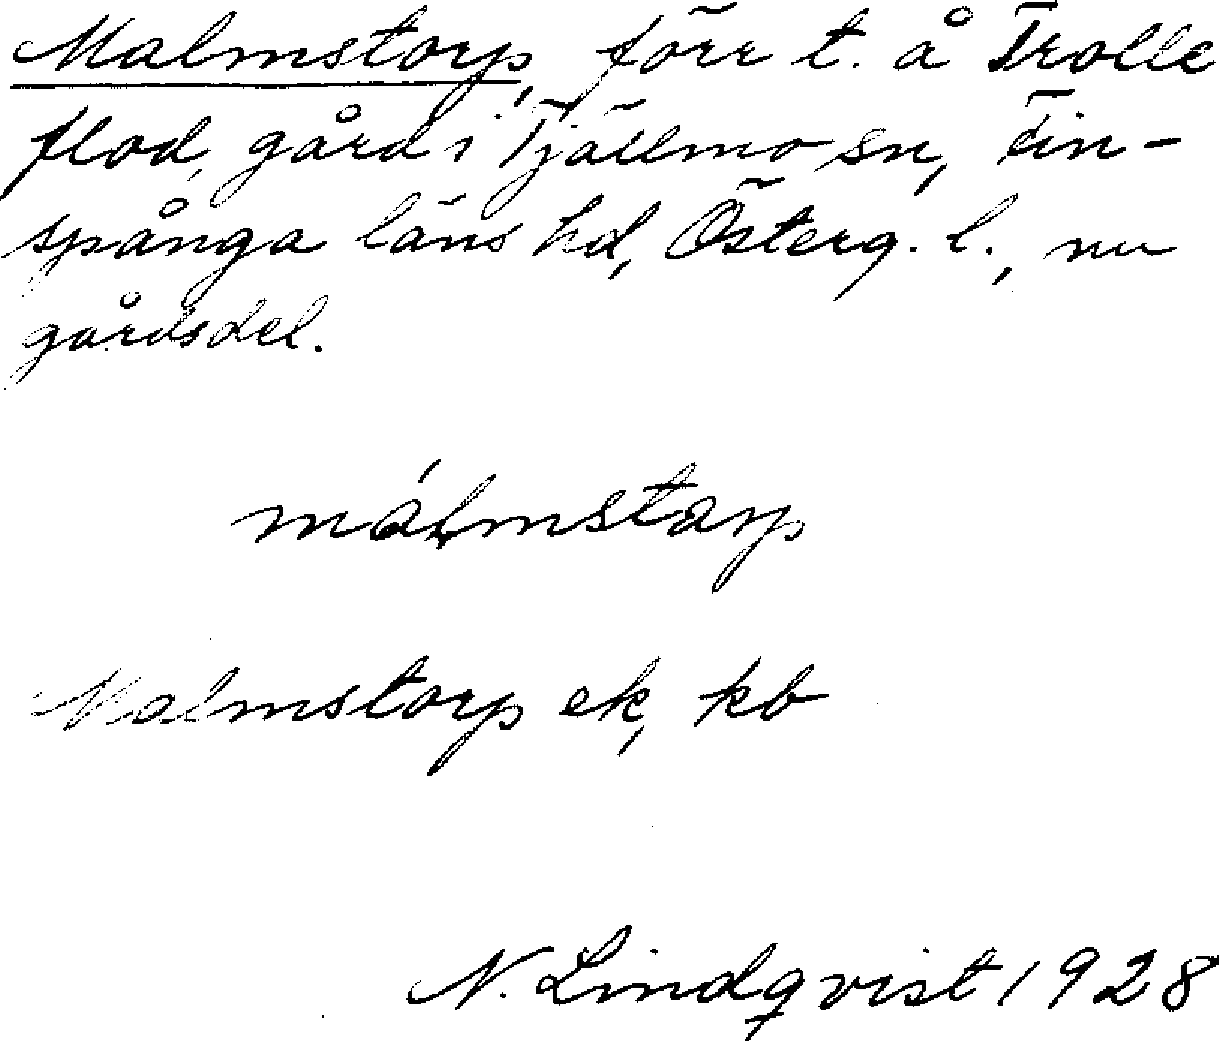 Malmstorp, förr t. å Trolle
flod, gård i Tjällmo sn, Fin-
spånga läns hd, Österg. l., nu
gårdsdel.
málmstorp
Malmstorp ek, kb
N. Lindqvist 1928